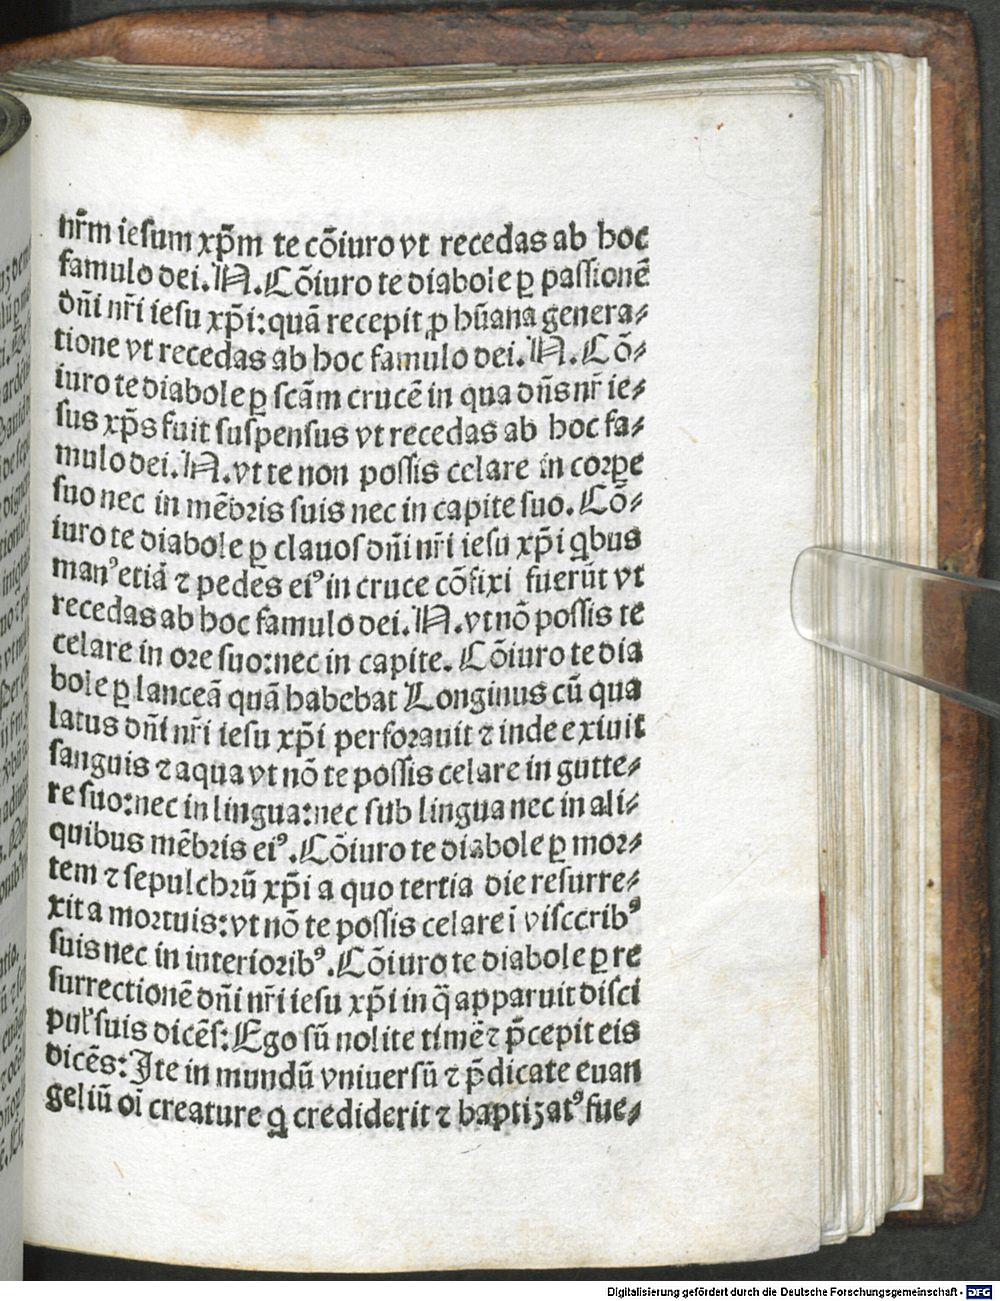 nr̃m iesum xp̃m te cõiuro vt recedas ab hoc
famulo dei. N. Cõiuro te diabole ꝑ passionẽ
dñi nr̃i iesu xp̃i: quã recepit ꝓ hũana genera⸗
tione vt recedas ab hoc famulo dei. N. Cõ⸗
iuro te diabole ꝑ scãm crucẽ in qua dñs nr̃ ie⸗
sus xp̃s fuit suspensus vt recedas ab hoc fa⸗
mulo dei. N. vt te non possis celare in corꝑe
suo nec in mẽbꝛis suis nec in capite suo. Cõ⸗
iuro te diabole ꝑ clauos dñi nr̃i iesu xp̃i q̇bus
manꝰ etiã ⁊ pedes eiꝰ in cruce cõfixi fuerũt vt
recedas ab hoc famulo dei. N. vt nõ possis te
celare in oꝛe suo: nec in capite. Cõiuro te dia
bole ꝑ lanceã quã habebat Longinus cũ qua
latus dñi nr̃i iesu xp̃i perfoꝛauit ⁊ inde exiuit
sanguis ⁊ aqua vt nõ te possis celare in gutte⸗
re suo: nec in lingua: nec sub lingua nec in ali⸗
quibus mẽbꝛis eiꝰ. Cõiuro te diabole ꝑ moꝛ⸗
tem ⁊ sepulchꝛũ xp̃i a quo tertia die resurre⸗
xit a moꝛtuis: vt nõ te possis celare ĩ visceribꝰ
suis nec in interioꝛibꝰ. Cõiuro te diabole ꝑ re
surrectionẽ dñi nr̃i iesu xp̃i in q̃ apparuit disci
pul' suis dicẽs: Ego sũ nolite timẽ ⁊ p̃cepit eis
dicẽs: Ite in mundũ vniuersũ ⁊ p̃dicate euan
geliũ oĩ creature q̇ crediderit ⁊ baptizatꝰ fue⸗
Digitalisierung gefördert durch die Deutsche Forschungsgemeinschaft - DFG